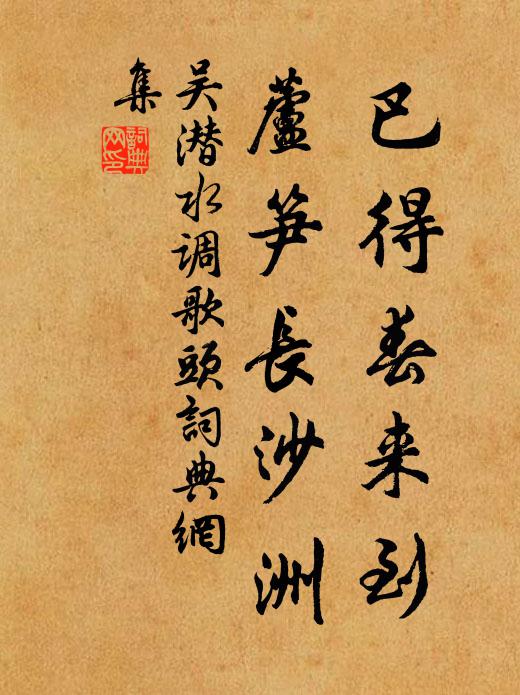 已得春来到
蘆笋長沙洲
吴潜水调歌頭詞典網
集
詞典
网印